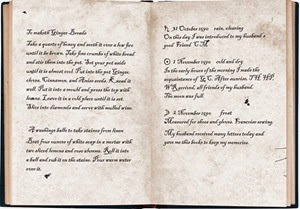 To maketh Ginger Breade
Take a quarte of honey and seeth it over a low fire
until it be brown. Take fine crumbs of white bread
and stir them into the pot. Set your pot aside
until it is almost cool. Put into the pot Ginger,
cloves, Cinnamon, and Anise seeds. Knead it
well. Put it into a mould and press the top with
bowle. Leave it in a cold place until it is set.
Slice into diamonds and serve with mulled wine.
A washinge balle to take staines from linen
Beat four ounces of white soap in a mortar with
two sliced lemons and roses. Roll it into
a ball and rub it on the stains. Pour warm water
over it.
31 October 1590 rain, clearing
On this day I was introduced to my husband's
good Friend CM.
1 November 1590 cold and dry
In the early hours of the morning I made the
acquaintance of G.C. After sunrise, TH, HP,
WR arrived, all friends of my husband.
The moon was full.
2 November 1590 frost
Measured for shoes and gloves. Francoise sewing.
My husband received many letters today and
gave me this booke to keep my memories.